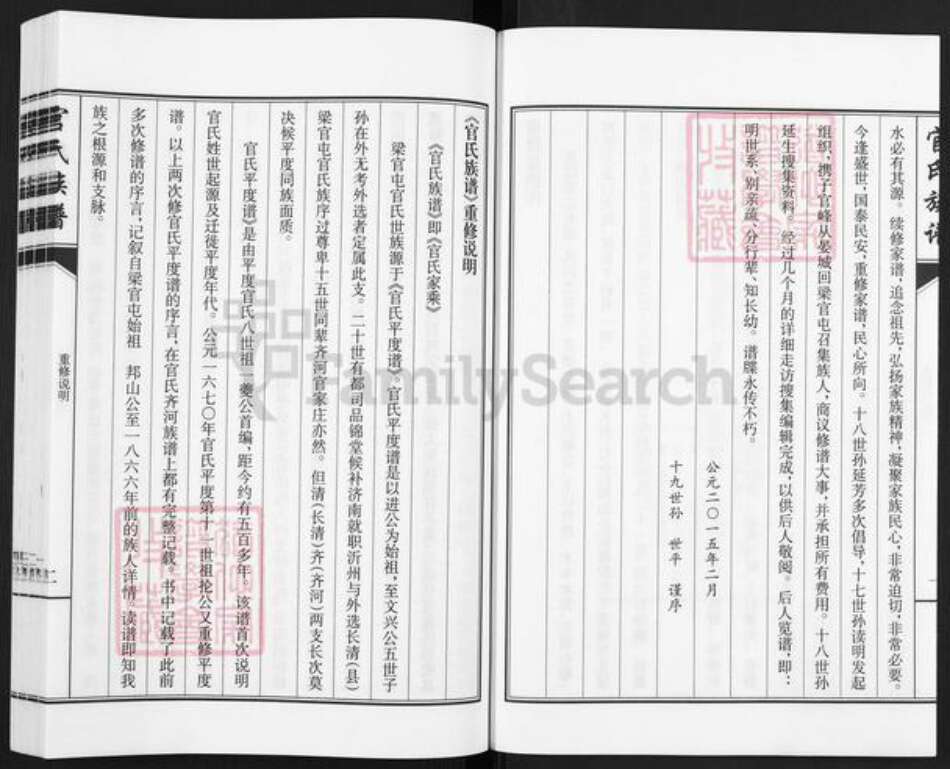 水必有其源。续修家谱，追念祖先，弘扬家族精神，凝聚家族民心，非常迫切，非常必要。
今逢盛世，国泰民安，重修家谱，民心所向。十八世孙延芳多次倡导，十七世孙读明发起
组织，携子官峰从晏城回梁官屯召集族人，商议修谱大事，并承担所有费用。十八世孙
延生搜集资料。经过几个月的详细走访搜集编辑完成，以供后人敬阅。后人览谱，即：
明世系、别亲疏、分行辈、知长幼。谱牒永传不朽。
公元二〇一五年二月
十九世孙 世平 谨序
《官氏族谱》重修说明
《官氏族谱》即《官氏家乘》
梁官屯官氏世族源于《官氏平度谱》。官氏平度谱是以进公为始祖，至文兴公五世子
孙在外无考外选者定属此支。二十世有都司品锦堂候补济南就职沂州与外选长清（县）
梁官屯官氏族序过尊卑十五世同辈齐河官家庄亦然。但清（长清）齐（齐河）两支长次莫
决候平度同族面质。
官氏平度谱》是由平度官氏八世祖一夔公首编，距今约有五百多年。该谱首次说明
官氏姓世起源及迁徙平度年代。公元一六七〇年官氏平度第十一世祖抡公又重修平度
谱。以上两次修官氏平度谱的序言，在官氏齐河族谱上都有完整记载。书中记载了此前
多次修谱的序言，记叙自梁官屯始祖 邦山公至一八六六年前的族人详情。读谱即知我
族之根源和支脉。
重修说明
二
官氏族谱
FamilySearch